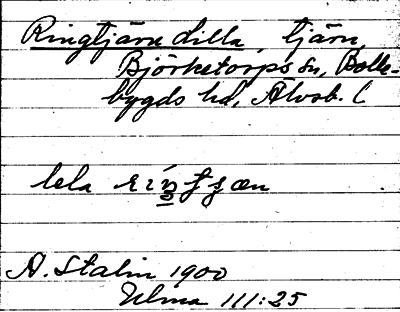 Ringtjärn lilla, tjärn
Björketorps sn, Bolle-
bygds hd, Älvsb. l
lela
A. Stalin 1900
Ulma 111:25